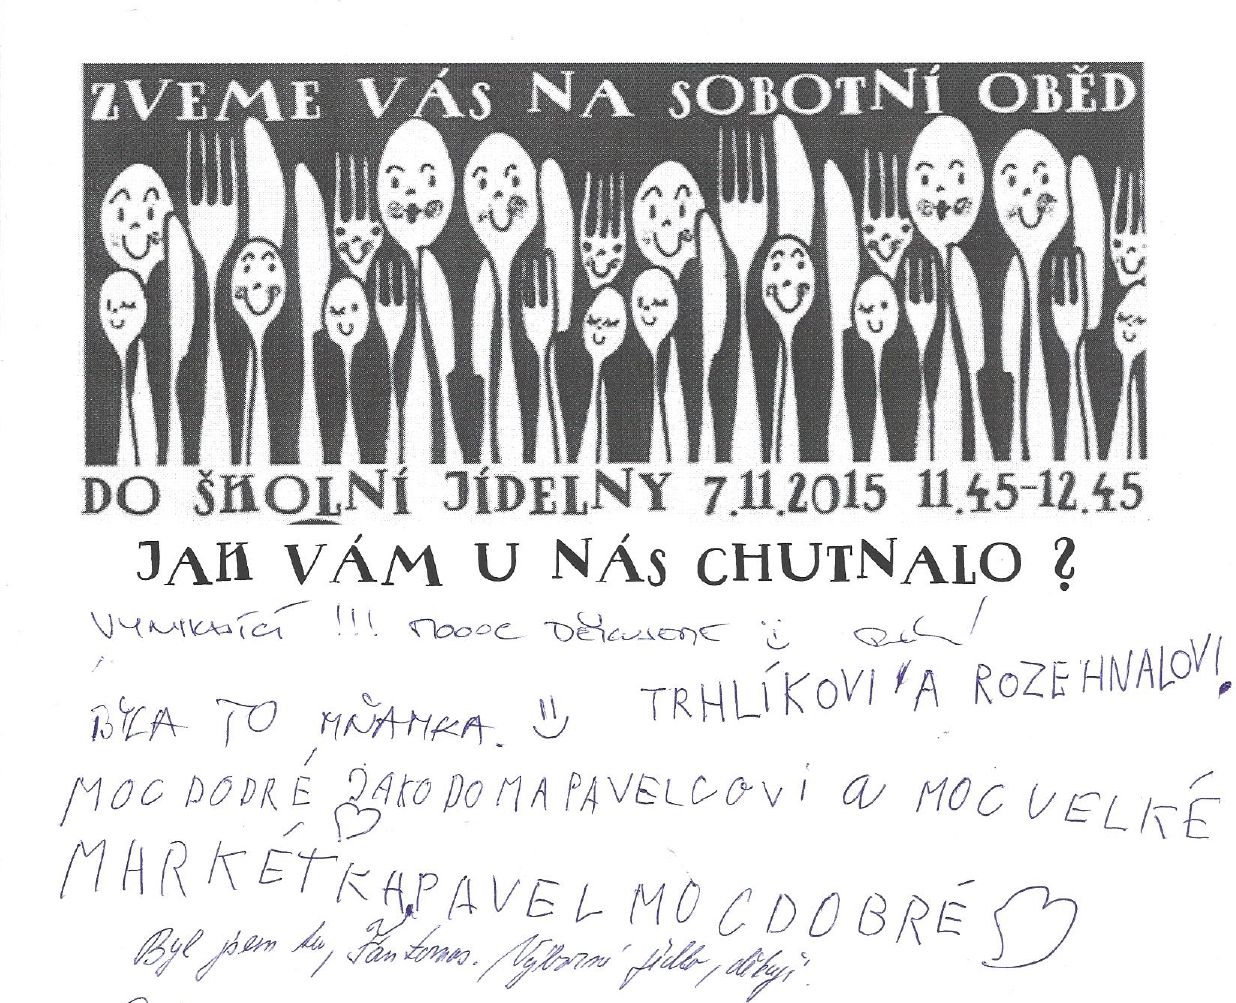 ZVEME VÁS NA SOBOTNÍ OBĚD
DO ŠKOLNÍ JÍDELNY 7.11.2015 11.45-12.45
JAK VÁM U NÁS CHUTNALO ?
VYNIKAJÍCÍ !!! MOOOC DĚKUJEME
TRHLÍKOVI A ROZEHNALOVI.
BYLA TO MŇAMKA.
MOC DODRÉ JAKO DOMA PAVELCOVI a MOC VELKÉ
MARKÉTKA, PAVEL MOC DOBRÉ
Byl jsem tu, Fantomas. Výborné jídlo, děkuji.